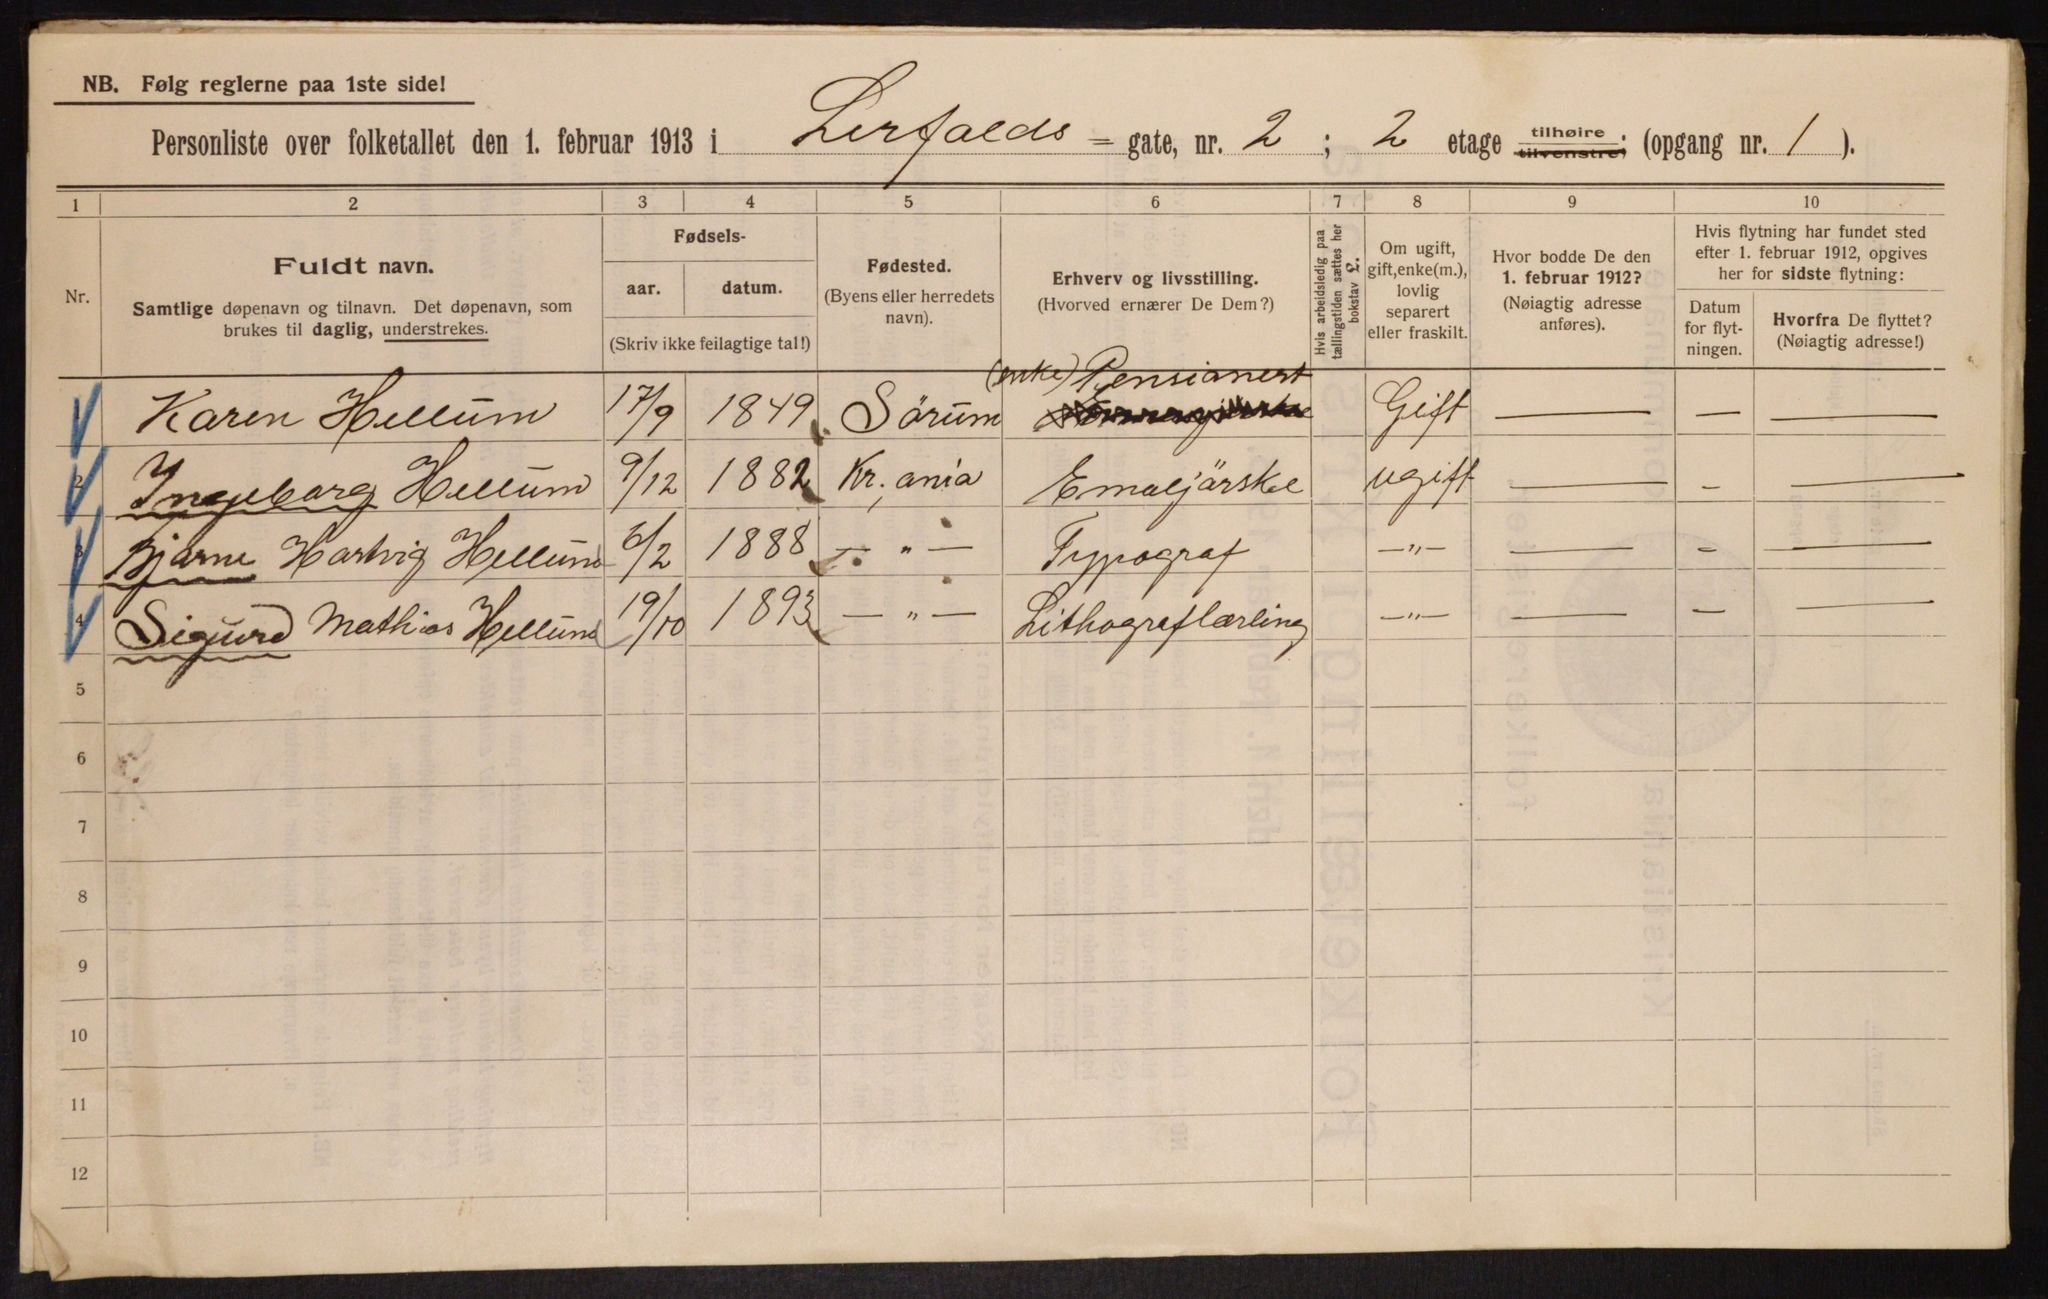 NB. Følg reglerne paa 1ste side!
Personliste over folketallet den 1. februar 1913 i Lerfalds = gate, nr. 2 ; 2 etage tilhøire tilvenstre; (opgang nr. 1 ).
1 2 3 4 5 6 7 8 9 10
Nr.
Fuldt navn.
Samtlige døpenavn og tilnavn. Det døpenavn, som
brukes til daglig, understrekes.
Fødsels-
aar. datum.
(Skriv ikke feilagtige tal!)
Fødested.
(Byens eller herredets
navn).
Erhverv og livsstilling.
(Hvorved ernærer De Dem?)
Hvis arbeidsledig paa
tællingstiden sættes her
bokstav £.
Om ugift,
gift, enke(m.),
lovlig
separert
eller fraskilt.
Hvor bodde De den
1. februar 1912?
(Nøiagtig adresse
anføres).
Hvis flytning har fundet sted
efter 1. februar 1912, opgives
her for sidste flytning:
Datum
for flyt-
ningen.
Hvorfra De flyttet?
(Nøiagtig adresse!)
(enke) Pensionert
Karen Hellum 17/9 1849 Sörum Gift — — —
2 Ingeborg Hellum 9/12 1882 Kr.ania Emaljörske ugift — – —
3 Bjarne Hartvig Hellum 6/2 1888 — " — Typograf —"— — – —
4 Sigurd Mathias Hellum 19/10 1893 — " — Lithograflærling —"— — – —
5
6
7
8
9
10
11
12